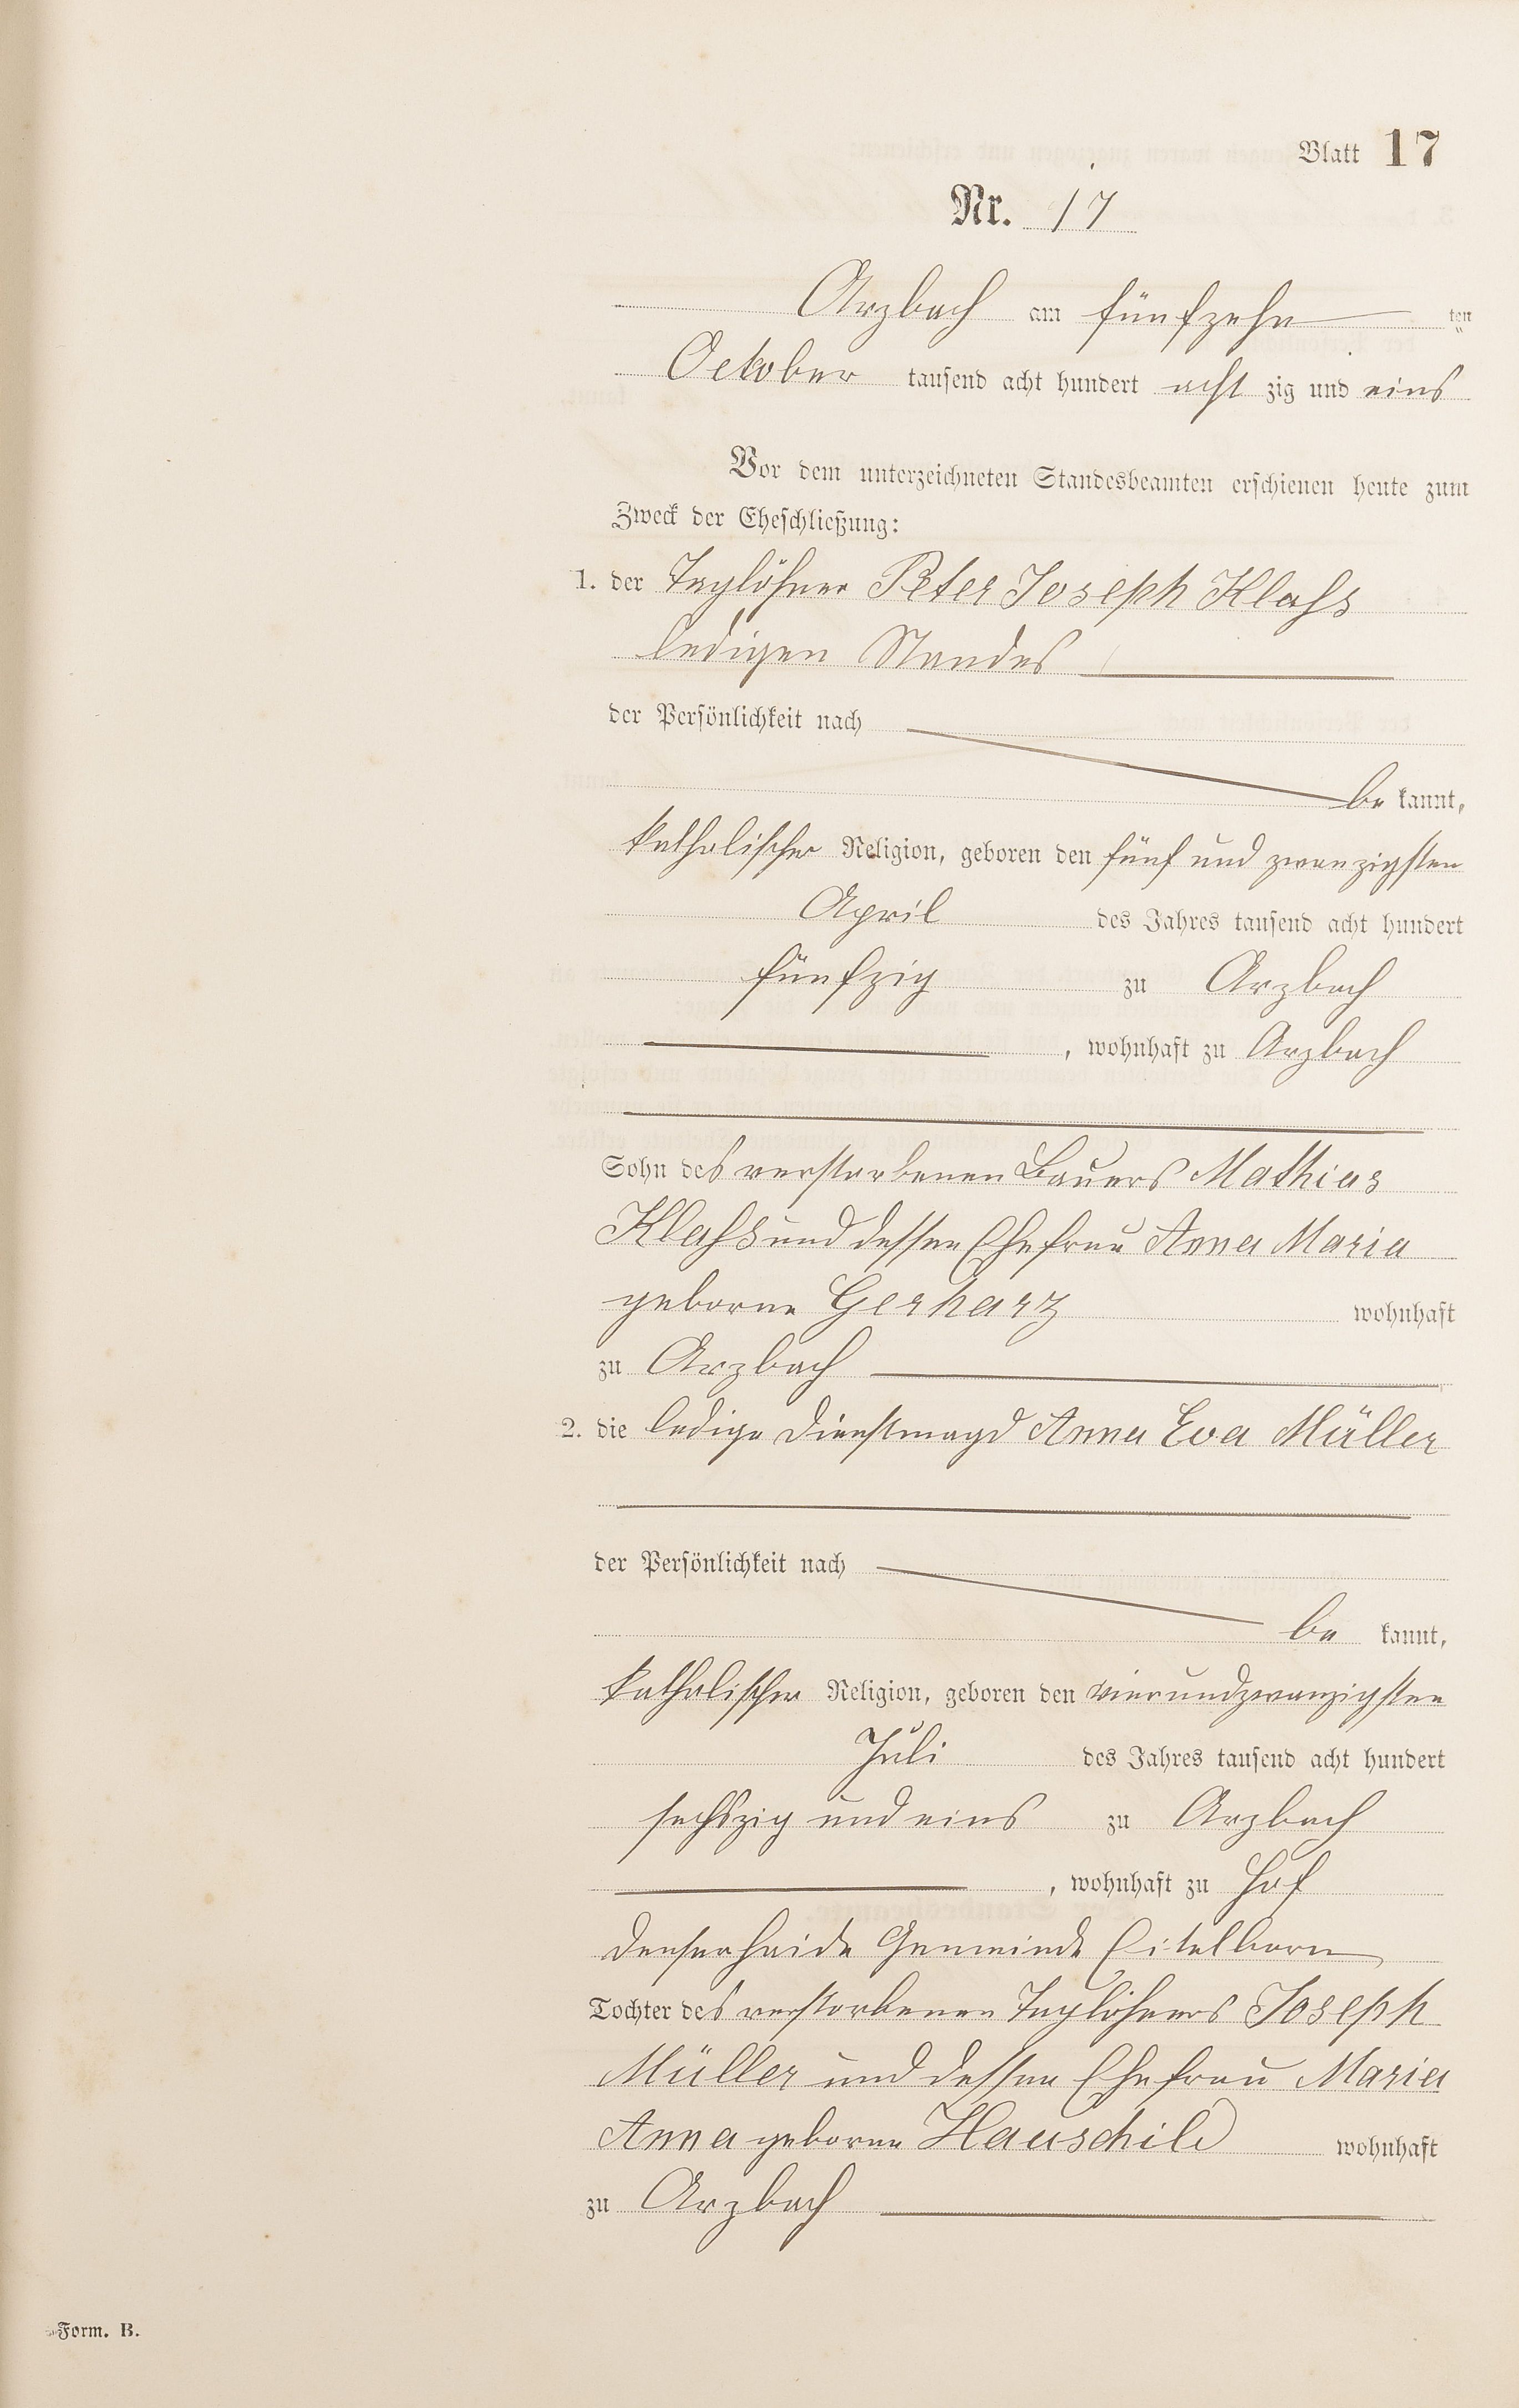 Blatt 17
Nr. 17
Arzbach am fünfzehn ten
October tausend acht hundert acht zig und eins
Vor dem unterzeichneten Standesbeamten erschienen heute zum
Zweck der Eheschließung:
1. der Taglöhner Peter Joseph Klahs
ledigen Standes
der Persönlichkeit nach
be kannt,
katholischer Religion, geboren den fünf und zwanzigsten
April des Jahres tausend acht hundert
fünfzig zu Arzbach
, wohnhaft zu Arzbach
Sohn des verstorbenen Bauers Mathias
Klahs und dessen Ehefrau Anna Maria
geborne Gerharz wohnhaft
zu Arzbach
2. die ledige Dienstmagd Anna Eva Müller
der Persönlichkeit nach
be kannt,
katholischer Religion, geboren den vierundzwanzigsten
Juli des Jahres tausend acht hundert
sechszig und eins zu Arzbach
, wohnhaft zu Hof
Denserheide Gemeinde Eitelborn
Tochter des verstorbenen Taglöhners Joseph
Müller und dessen Ehefrau Maria
Anna geborne Hauschild wohnhaft
zu Arzbach
Form. B.